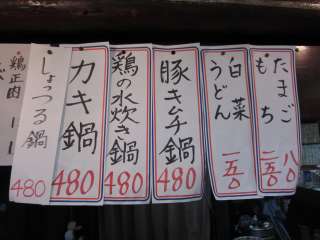 たまご 八〇
もち 一五〇
白菜
うどん 一五〇
豚キムチ鍋
480
鶏の水炊き鍋
480
カキ鍋
480
しょっつる鍋
480
鶏正肉